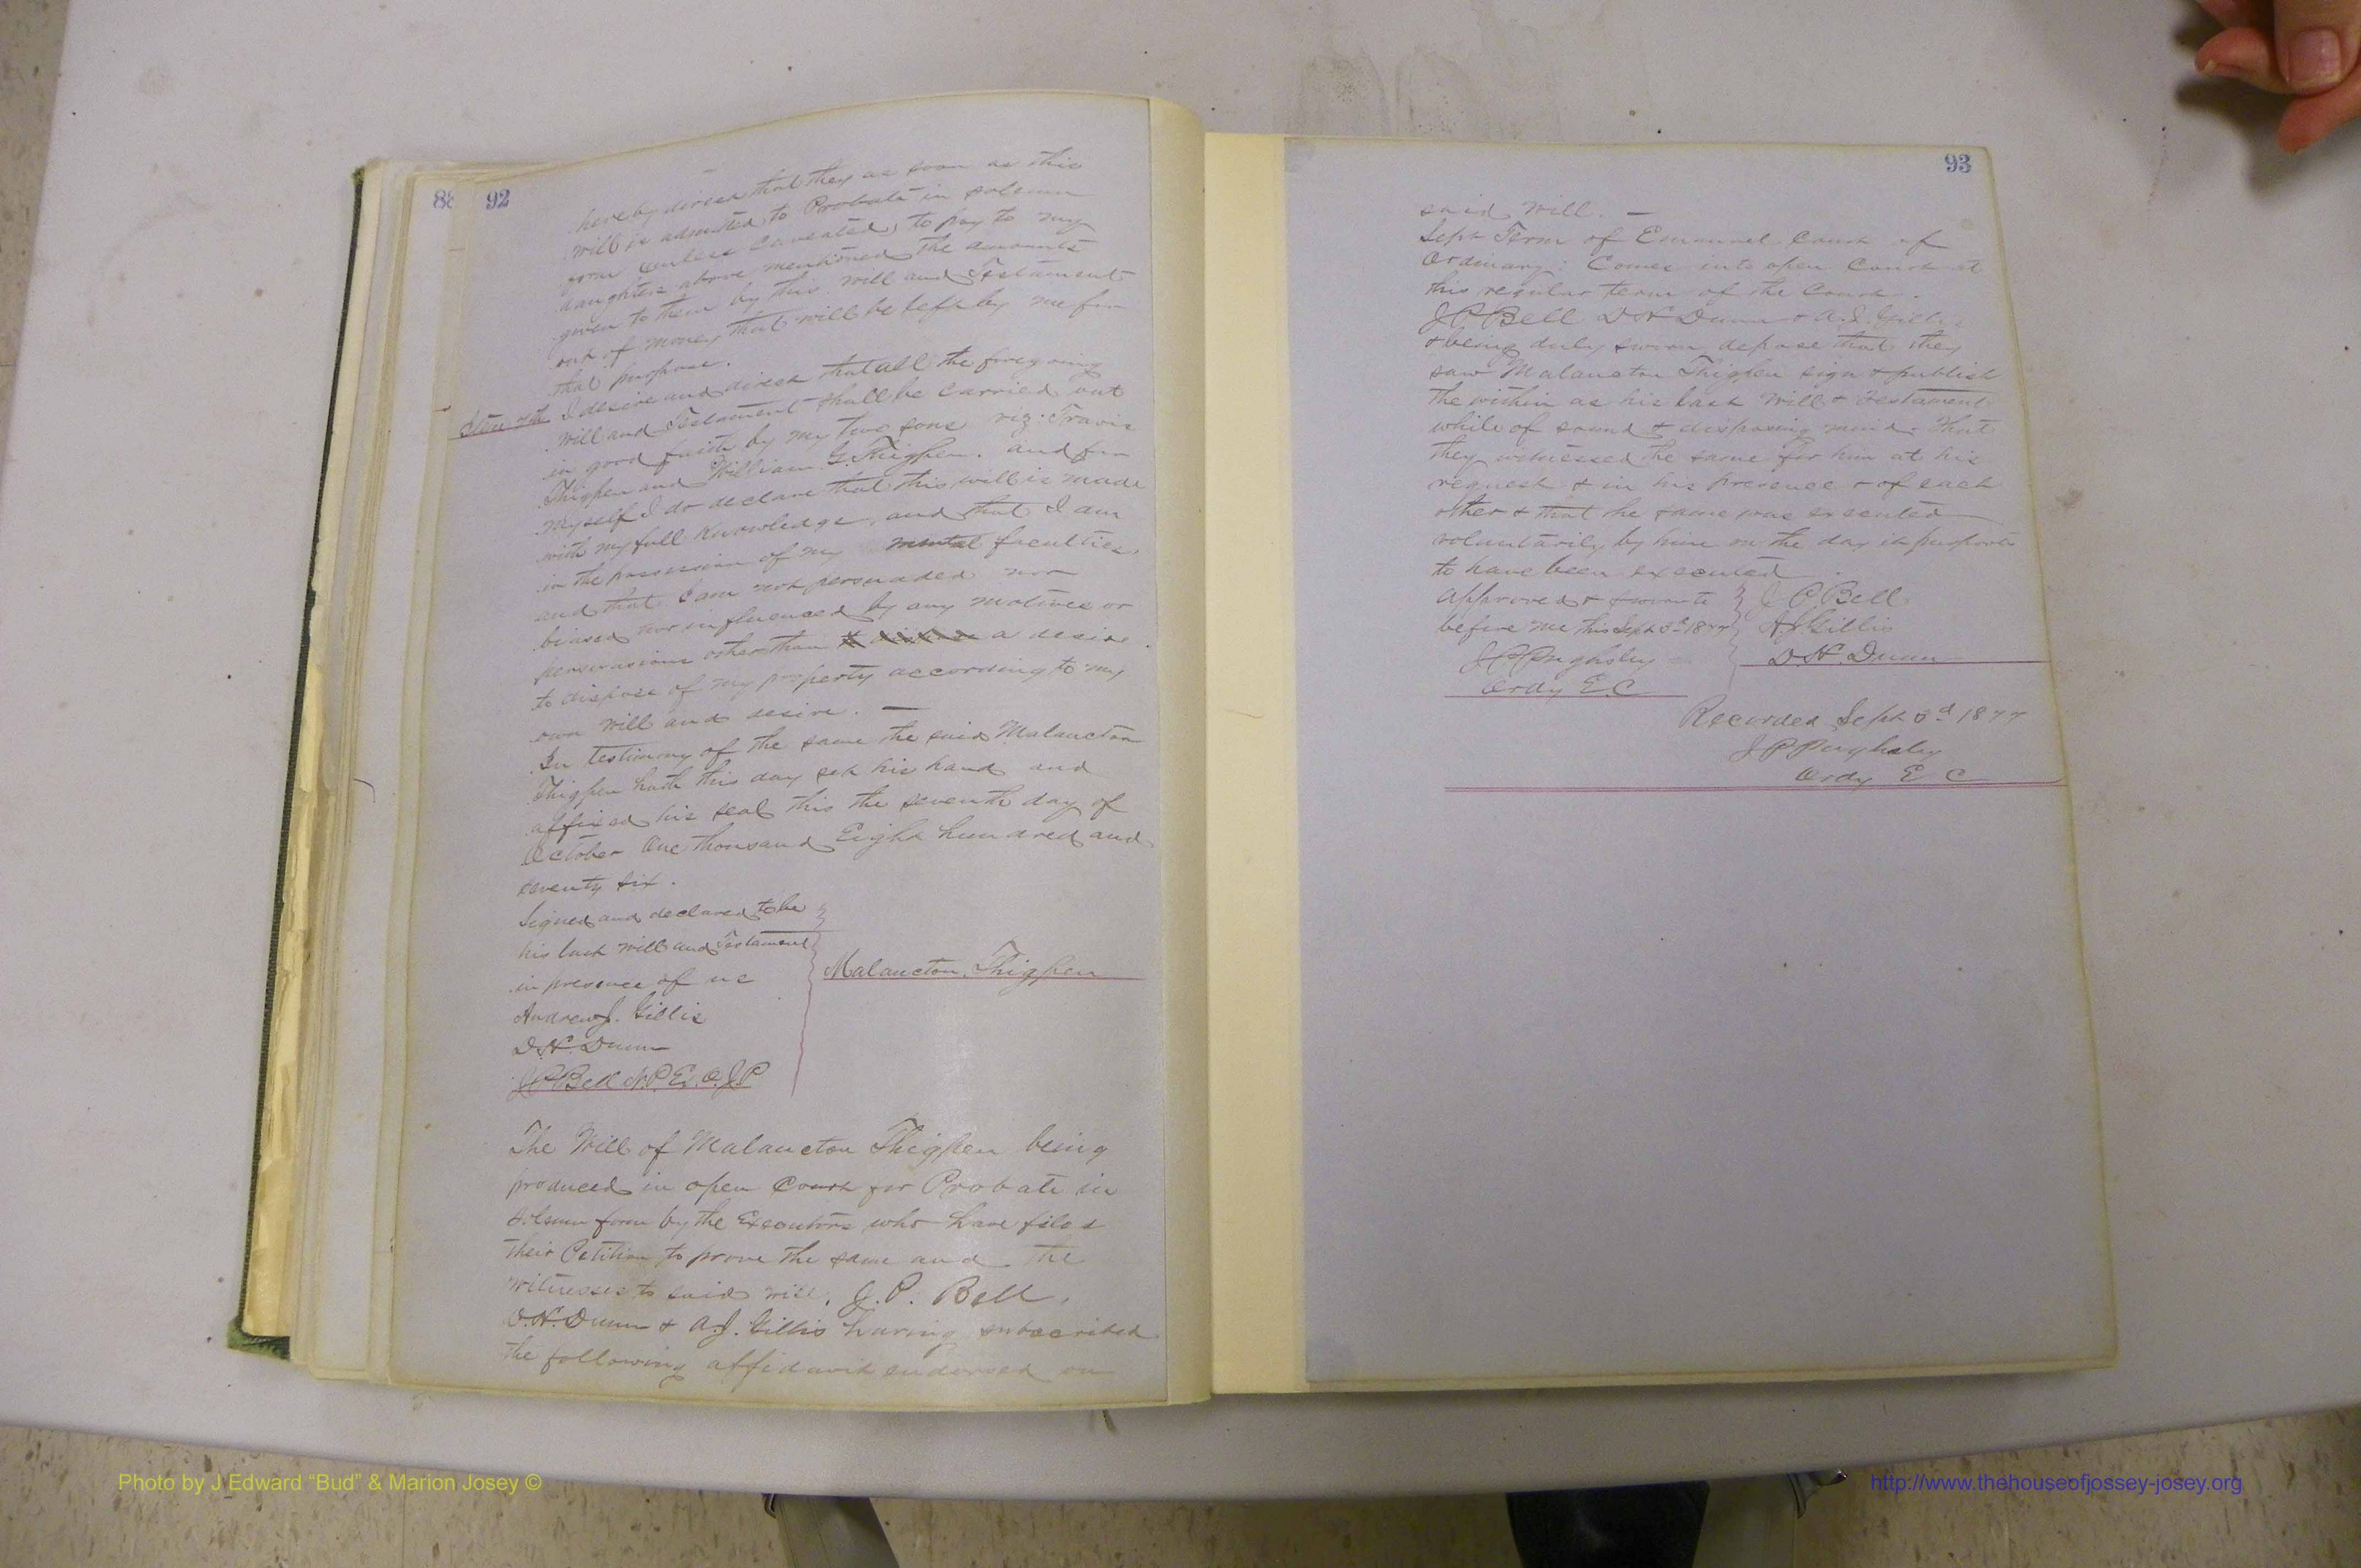 88 92
hereby direct that they as soon as this
will is admitted to Probate in solemn
form unless Caveated, to pay to my
daughters above mentioned the amounts
given to them by this will and Testament
out of money that will be left by me for
that purpose.
Item 7th I desire and direct that all the foregoing
will and Testament shall be carried out
in good faith by my two sons viz: Travis
Thigpen and William G. Thigpen. and for
myself I do declare that this will is made
with my full Knowledge, and that I am
in the possession of my mental faculties,
and that I am not persuaded nor
biased nor influenced by any motives or
persuasions other than a desire
to dispose of my property according to my
own will and desire. —
In testimony of the same the said Malancton
Thigpen hath this day set his hand and
affixed his seal this the seventh day of
October One thousand Eight hundred and
seventy six.
Signed and declared to be
his last will and Testament
in presence of us
Malancton Thigpen
Andrew J. Gillis
D.H. Dunn
J P Bell N.P. Ex. O. J.P
The Will of Malancton Thigpen being
produced in open Court for Probate in
solemn form by the Executors who have filed
their Petition to prove the same and the
witnesses to said will, J. P. Bell,
D.H. Dunn & A.J. Gillis having subscribed
the following affidavit endorsed on
93
said will. —
Sept Term of Emanuel Court of
Ordinary: Comes into open Court at
this regular term of the Court.
J P Bell D H Dunn & A. J. Gillis
& being duly sworn depose that they
saw Malancton Thigpen sign & publish
the within as his last Will & Testament
while of sound & disposing mind. That
they witnessed the same for him at his
request & in his presence & of each
other & that he same was executed
voluntarily by him on the day it purports
to have been executed.
approved & J P Bell
before me this Sept 3d 1877 A J Gillis
J P Pughsley D.H. Dunn
Ordy E.C
Recorded Sept 3d 1877
J P Pughsley
Ordy E C
Photo by J Edward “Bud” & Marion Josey ©
http://www.thehouseofjossey-josey.org